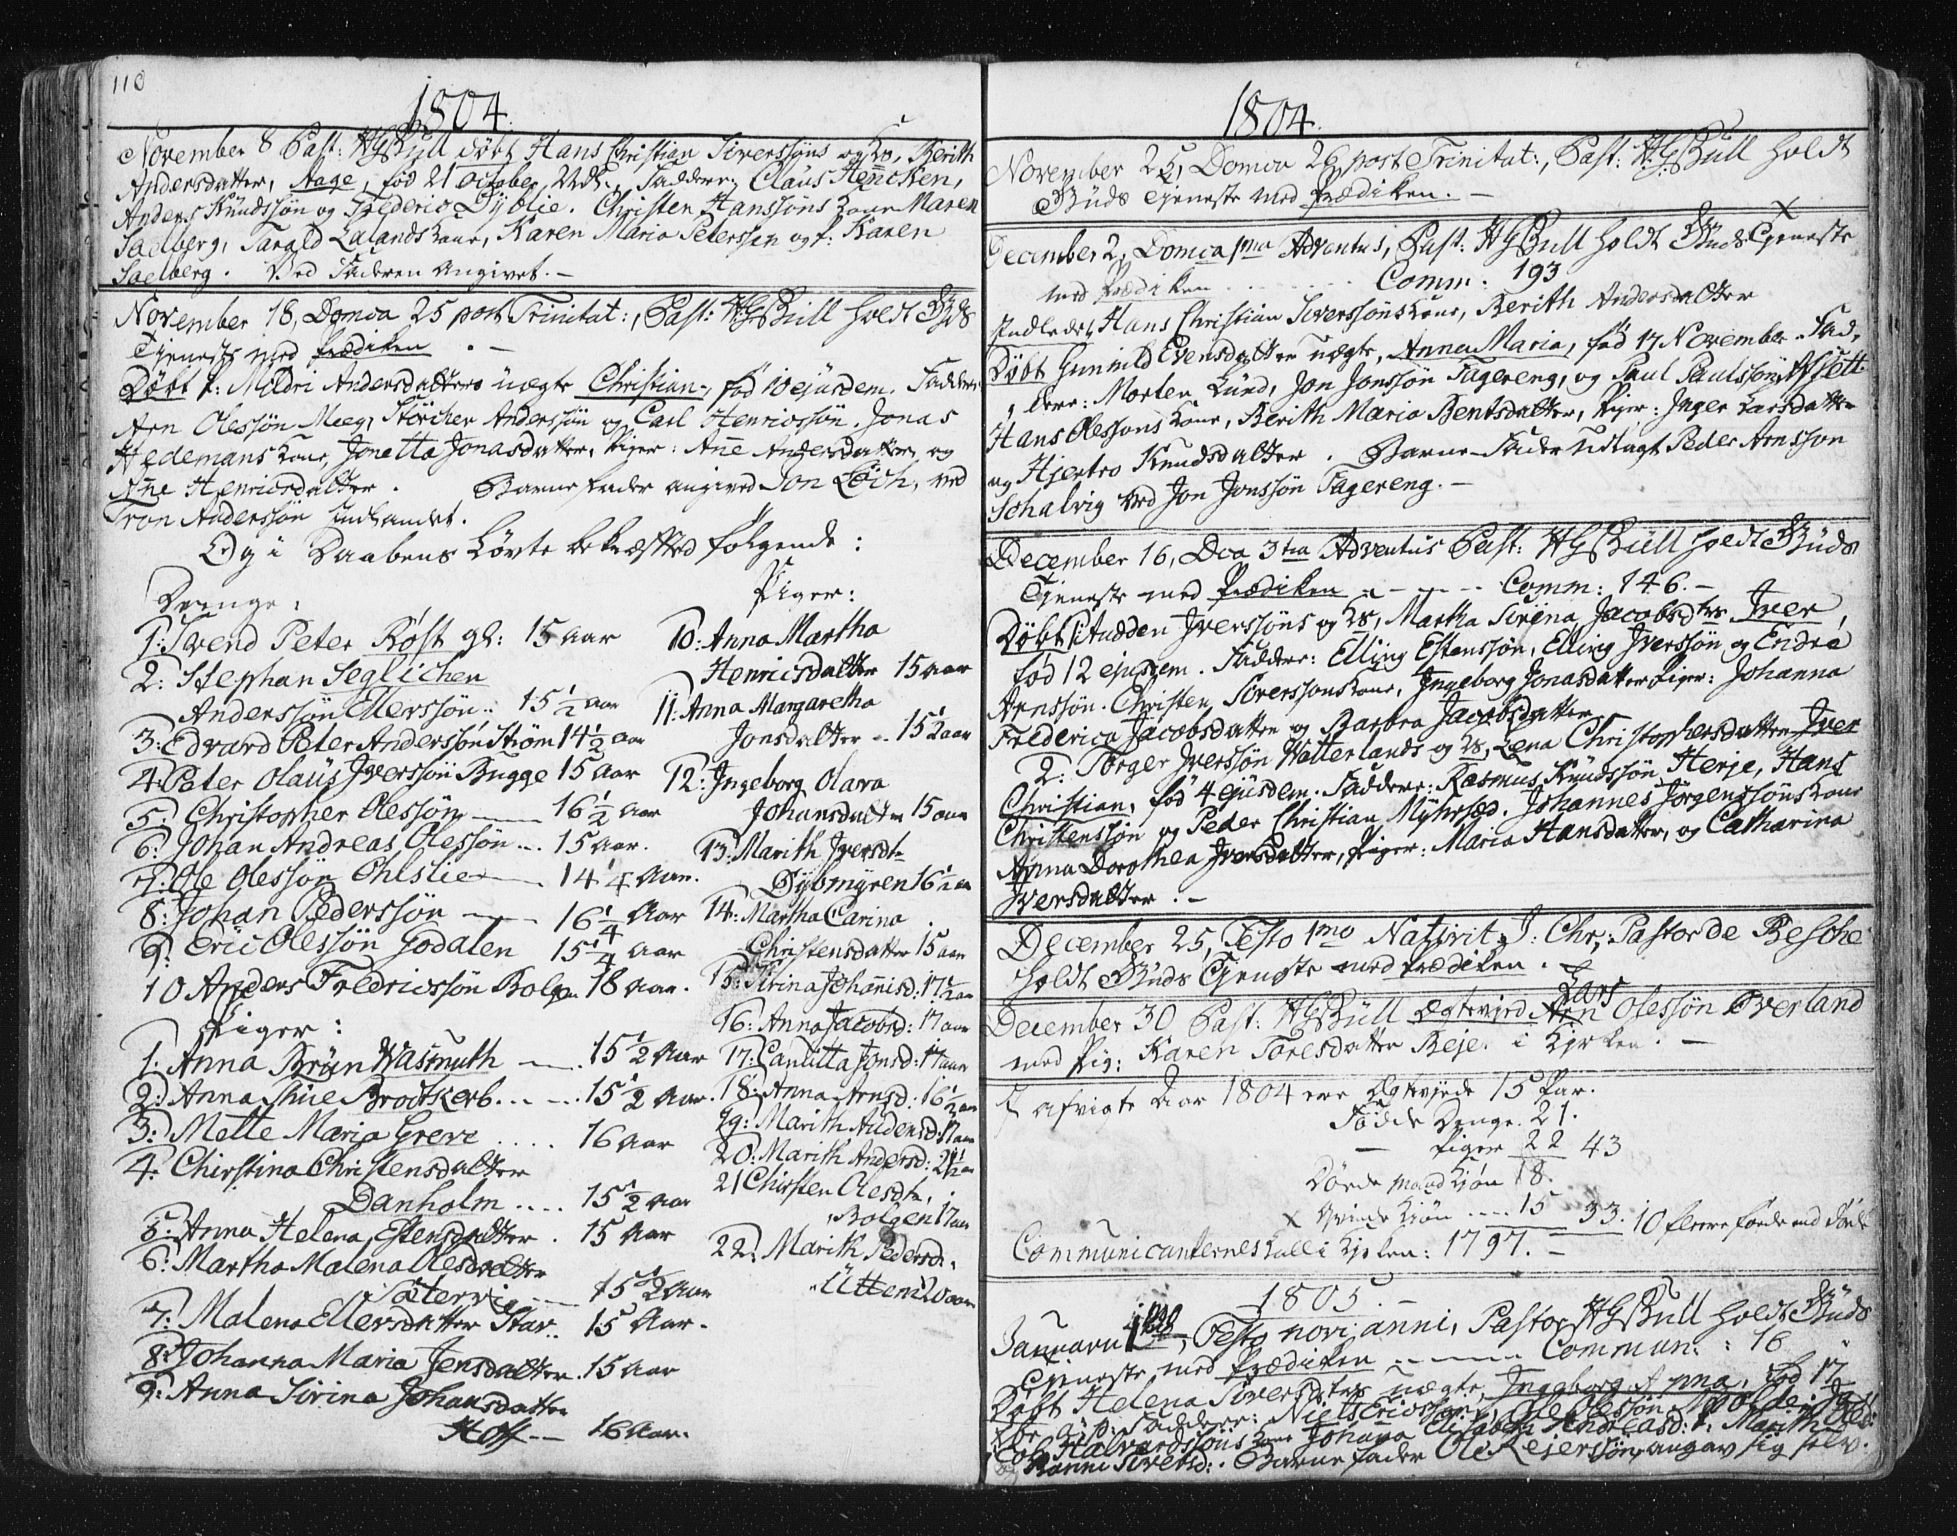 110
1804.
November 8 Past: HGBüll döbt Hans Christian Siverssöns og Ko, Berith
Andersdatter, Aage, föd 21 october. Faddere: Claus Hencken,
Anders Knüdssön og Frederic Dyblie. Christen Hanssöns Kone Maren
Saelberg, Tarald Lalands Kone, Karen Maria Peterssen og f: Karen
Saelberg. Ved Faderen angivet.
November 18, Domca 25 post Trinitat:, Past: HGBüll holdt Güds
Tjeneste med Prædiken.
Döbt f: Mildri Andersdatters uægte Christian, föd 10 ejusdem. Faddere
Arn Olessön Meeg, Störcher Anderssön og Carl Henricssön. Jonas
Hedemans Kone, Jonetta Jonasdatter, Piger: Ane Andersdatter og
Ane Henricsdatter. Barnefader angived Jon Loch, ved
Tron Anderssön
Og i Daabens Løvte bekræfted følgende:
Drenge:
1: Svend Peter Röst gl: 15 aar
2: Stephan Seglichen
Anderssön Ellerssön 15 1/2 aar
3: Edvard Peter Anderssön Ström 14 1/2 aar
4: Peter Olaüs Iverssön Bugge 15 Aar
5: Christopher Olessön 16 1/2 aar
6: Johan Andreas Olessön 15 aar.
7: Ole Olessön Ohlslie 14 1/4 Aar.
8: Johan Pederssön 16 1/4 Aar
9: Eric Olessön Godalen 15 1/4 aar
10 Anders Fredricssön Bolgen 18 aar.
Piger:
1. Anna Brün Wasmuth 15 1/2 Aar
2: Anna Stine Brodtkorb 15 1/2 Aar.
3: Mette Maria Greve 16 aar
4. Chirstina Christensdatter
Danholm 15 1/2 Aar
5: Anna Helena Estensdatter. 15 Aar
6: Martha Malena Olesdatter
Sätervig 15 1/2 Aar
7: Malena Ellersdatter Star 15 Aar.
8: Johanna Maria Jensdatter. 15 aar
9: Anna Sirina Johansdatter
Hoff 16 Aar.
Piger:
10: Anna Martha
Henricsdatter 15 aar
11: Anna Margaretha
Jonsdatter 15 1/2 aar
12: Ingeborg Olava
Johansdatter 15 aar
13: Marith Iversdtr
Dybmyren 16 1/2 aar
14: Martha Carina
Christensdatter 15 aar
15: Sirina Johanisd: 17 1/2 aar
16: Anna Jacobsd: 17 aar
17: Canutta Jonsd: 17 aar
18: Anna Arnsd: 16 1/2 aar
19: Marith Audensd: 17 aar
20: Marith Andersd: 21 1/2 aar
21 Chirsten Olesdtr,
Bolgen 17 aar
22: Marith Pedersd:
Utten 20 aar
1804.
November 25, Domca 26 post Trinitat:, Past: HGBüll holdt
Güds Tjeneste med Prædiken.
x
December 2, Domca 1ma Adventus, Past: HGBüll holdt Güds Tjeneste
med Prædiken Comm: 193
Indledet Hans Christian Siverssöns Kone, Berith Andersdatter
Döbt Gunnild Evensdatter uægte, Anne Maria, föd 17 November. Fad,
dere: Morten Lünd, Jon Jonssön Fagereng, og Paul Paulssön
Hans Olessons Kone, Berith Maria Bentsdatter, Piger: Inger Larsdatter
og Hjertro Knudsdatter. Barne-Fader Udlagt Peder Arnsson
Schalvig ved Jon Jonssön Fagereng.
December 16, Dca 3tia Adventus Past: HGBüll holdt Güds
Tjeneste med Prædiken Comm: 146.
Döbt: Audden Iverssöns og Ks, Martha Sirena Jacobsdtrs Iver,
föd 12 ejusdem. Faddere: Elling Estenssön, Elling Iverssön og Endre
Arnssön. Christen Siverssons Kone, Ingeborg Jonasdatter Piger: Johanna
Frederica Jacobsdatter og Barbra Jacobsdatter
2: Torger Iverssön Walterlands og Ks, Lena Christophersdatter Iver
Christian, föd 4 ejusdem. Faddere: Rasmus Knüdssön Herje, Hans
Christenssön og Peder Christian Myhrsed. Johannes Jörgenssöns Kone
Anna Dorothea Iversdatter, Piger: Maria Hansdatter, og Catharina
Iversdatter.
December 25, Festo 1mo Nativit. J: Chr, Pastor de Besche
holdt Güds Tjeneste med Prædiken.
Lars
December 30 Past: HGBüll Ægtevied Arn Olessön Overland
med Pig: Karen Toresdatter Reje. i Kirken.
I afvigte Aar 1804 ere Ægteviede 15 Par.
Födde Drenge 21.
Piger 22 43
Döde Mandkjön 18.
x Qvindekjön 15 33. 10 fleere fødde end døde
Communicanternes tall i Kirken: 1797.
1805.
Januarii 1, Festo novi anni, Pastor HGBüll holdt Güds
Tjeneste med Prædiken Commun: 16
Döbt Helena Siversdtrs uægte, Ingeborg Anna, föd 17
Faddere: Niels Ericssön, Ole Olessön
Halvardssöns Kone Johana Elisabeth Andreasd: f. Marith Oles
Ranni Sivertsd: Barnefader Ole Rejerssön, angav sig selv.